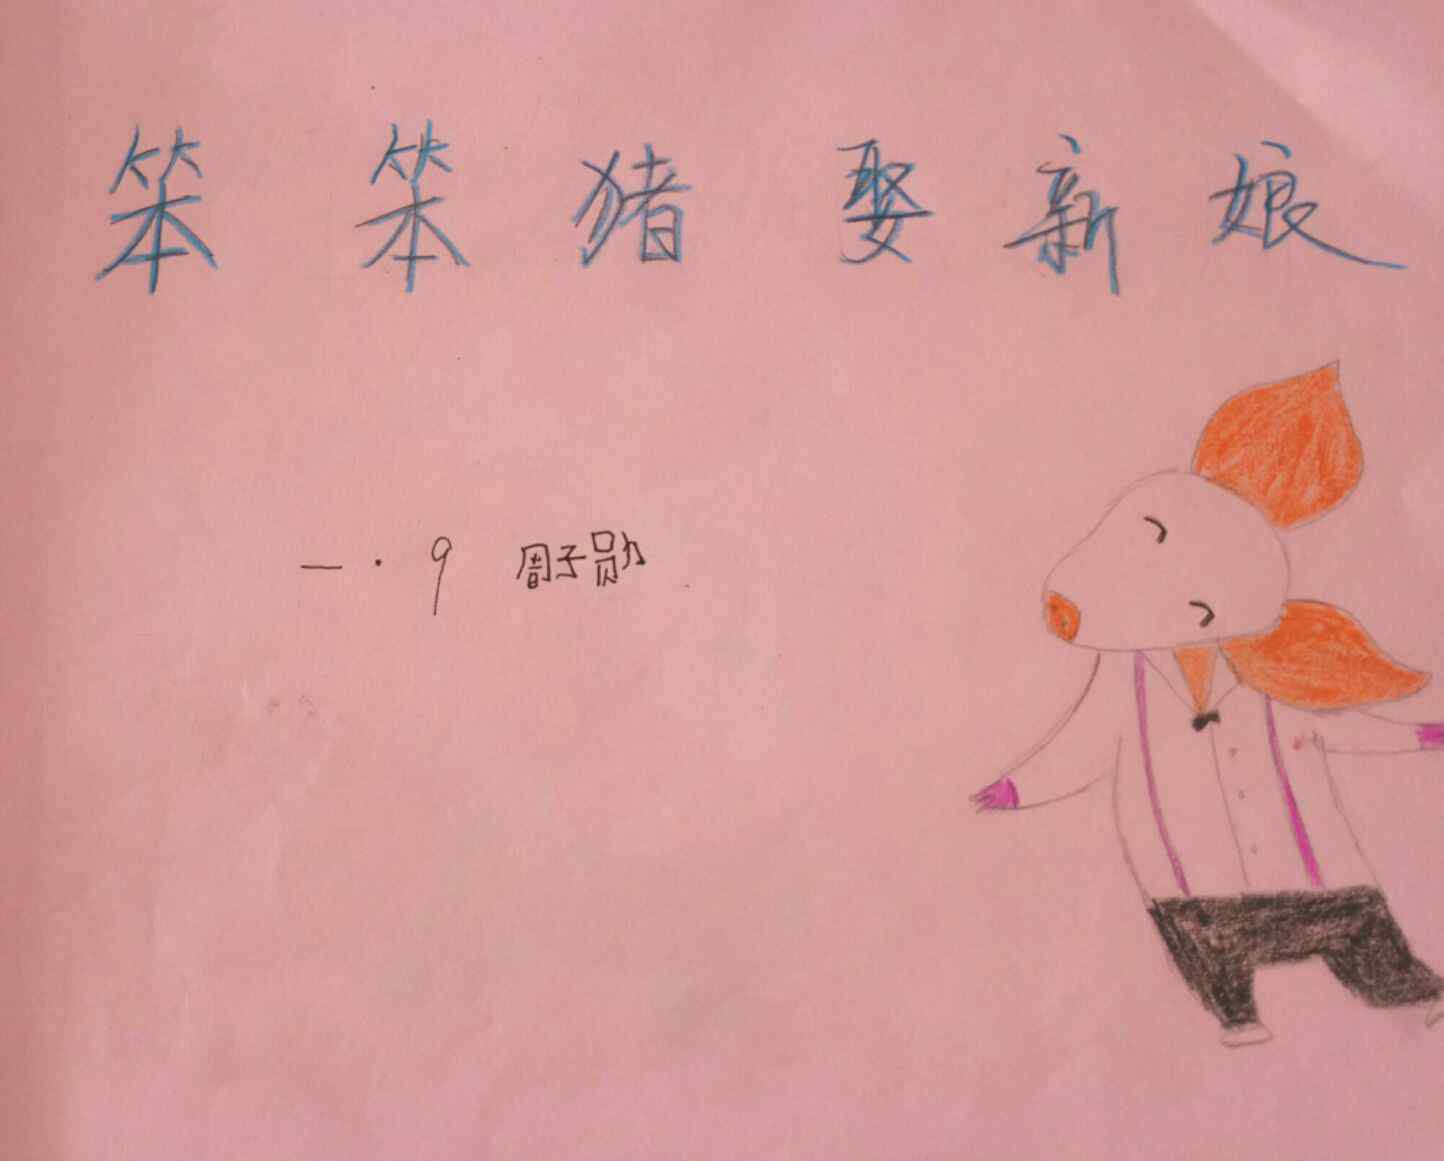 笨笨猪娶新娘
一.9 周子勋